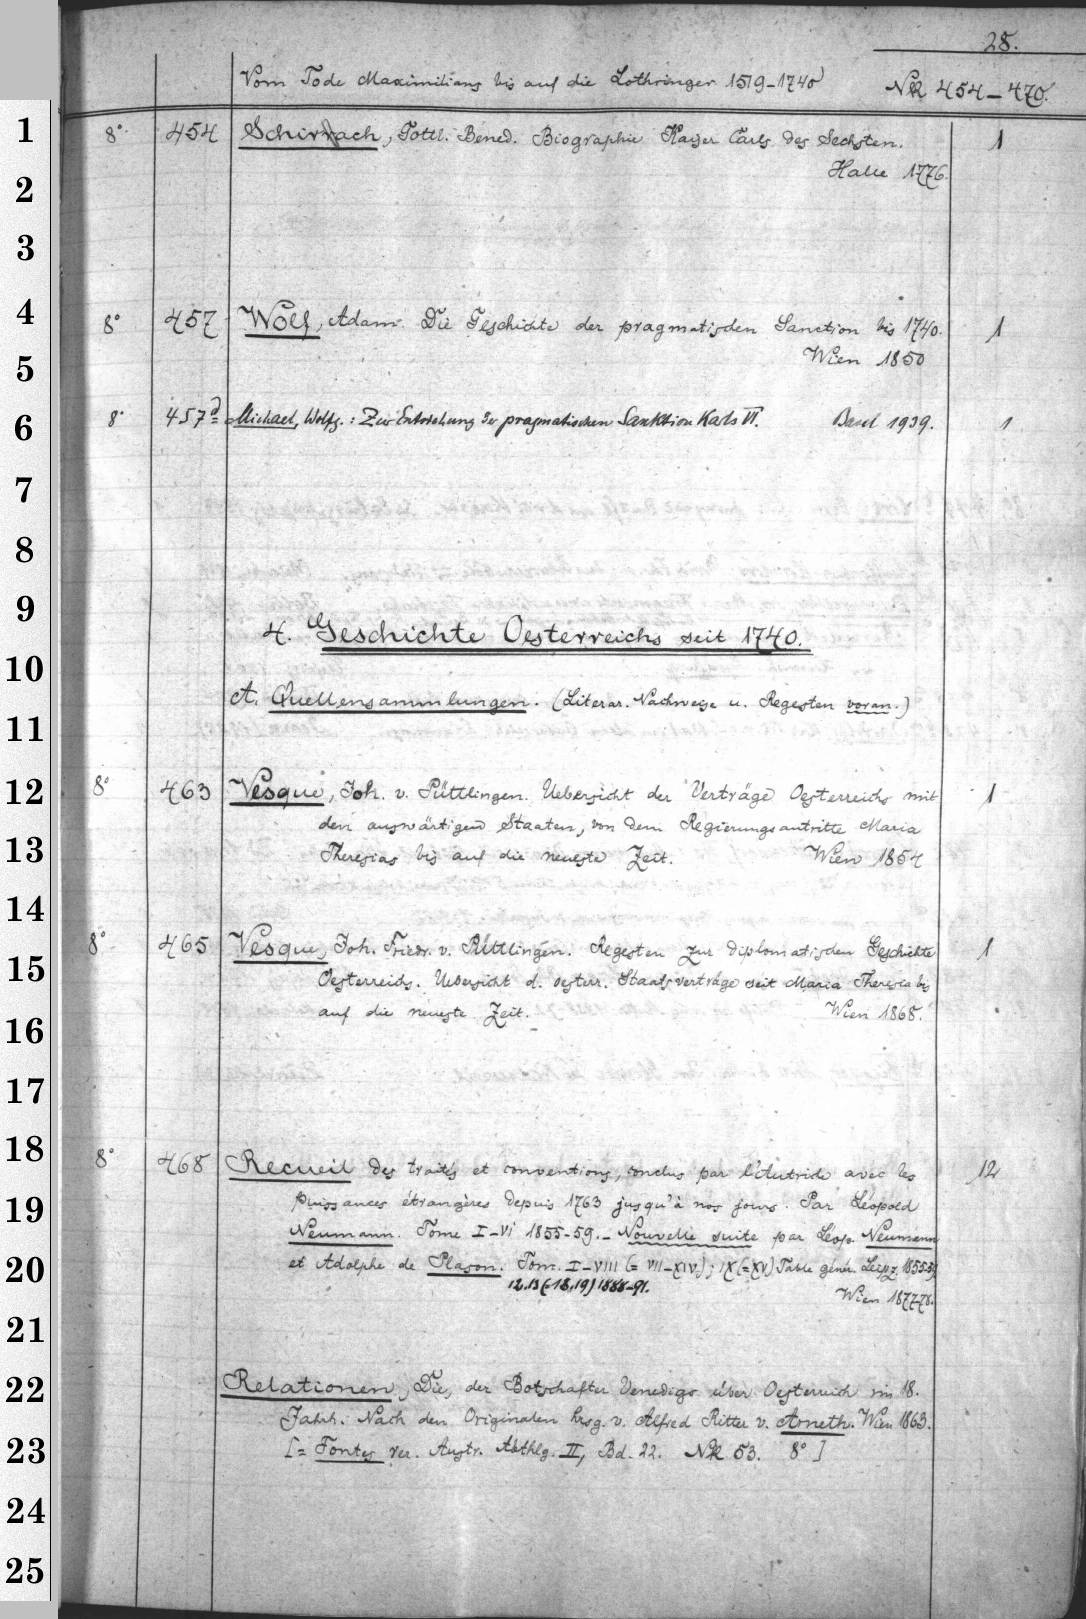 28.
Vom Tode Maximilians bis auf die Lothringer 1519-1740
NR 454-470.
1 8° 454 Schirach, Gottl. Bened. Biographie Kaiser Carls des Sechsten. 1
2 Halle 1776.
3
4 8° 457 Wolf, Adam. Die Geschichte der pragmatischen Sanction bis 1740. 1
5 Wien 1850
6 8° 457a Michael, Wolfg.: Zur Entstehung der pragmatischen Sanktion Karls VI. Basel 1939. 1
7
8
9 4. Geschichte Oesterreichs seit 1740.
10
11 A. Quellensammlungen. (Literar. Nachweise u. Regesten voran.)
12 8° 463 Vesque, Joh. v. Püttlingen. Uebersicht der Verträge Oesterreichs mit 1
den auswärtigen Staaten, von dem Regierungsantritte Maria
13 Theresias bis auf die neueste Zeit. Wien 1854
14
8° 465 Vesque, Joh. Friedr. v. Püttlingen. Regesten zur diplomatischen Geschichte 1
15 Oesterreichs. Uebersicht d. oesterr. Staatsverträge seit Maria Theresia bis
16 auf die neueste Zeit. Wien 1868.
17
18 8° 468 Recueil des traités et conventions, conclus par l'Autriche avec les 12
19 puissances étrangères depuis 1763 jusqu'à nos jours. Par Léopold
Neumann. Tome I-VI 1855-59. - Nouvelle suite par Léop. Neumann
20 et Adolphe de Plason. Tom. I-VIII (= VII-XIV); IX (=XV) Table génér. Leipz. 1855-59
12.13 (=18.19) 1888-91.
Wien 1877-78.
21
22 Relationen, Die, der Botschafter Venedigs über Oesterreich im 18.
Jahrh. Nach den Originalen hrsg. v. Alfred Ritter v. Arneth. Wien 1863.
23 [= Fontes rer. Austr. Abthlg. II, Bd. 22. NR 53. 8°]
24
25